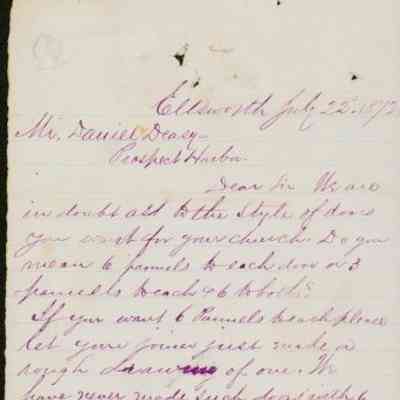 Ellsworth July 22. 1872
Mr. Daniel Deasy
Prospect Harbor
Dear Sir We are
in doubt as to the style of doors
you want for your church. Do you
mean 6 pannels to each door or 3
pannels to each & 6 to both?
If you want 6 Pannels to each please
let your joiner just make a
rough drawing of one. We
have never made such doors with 6